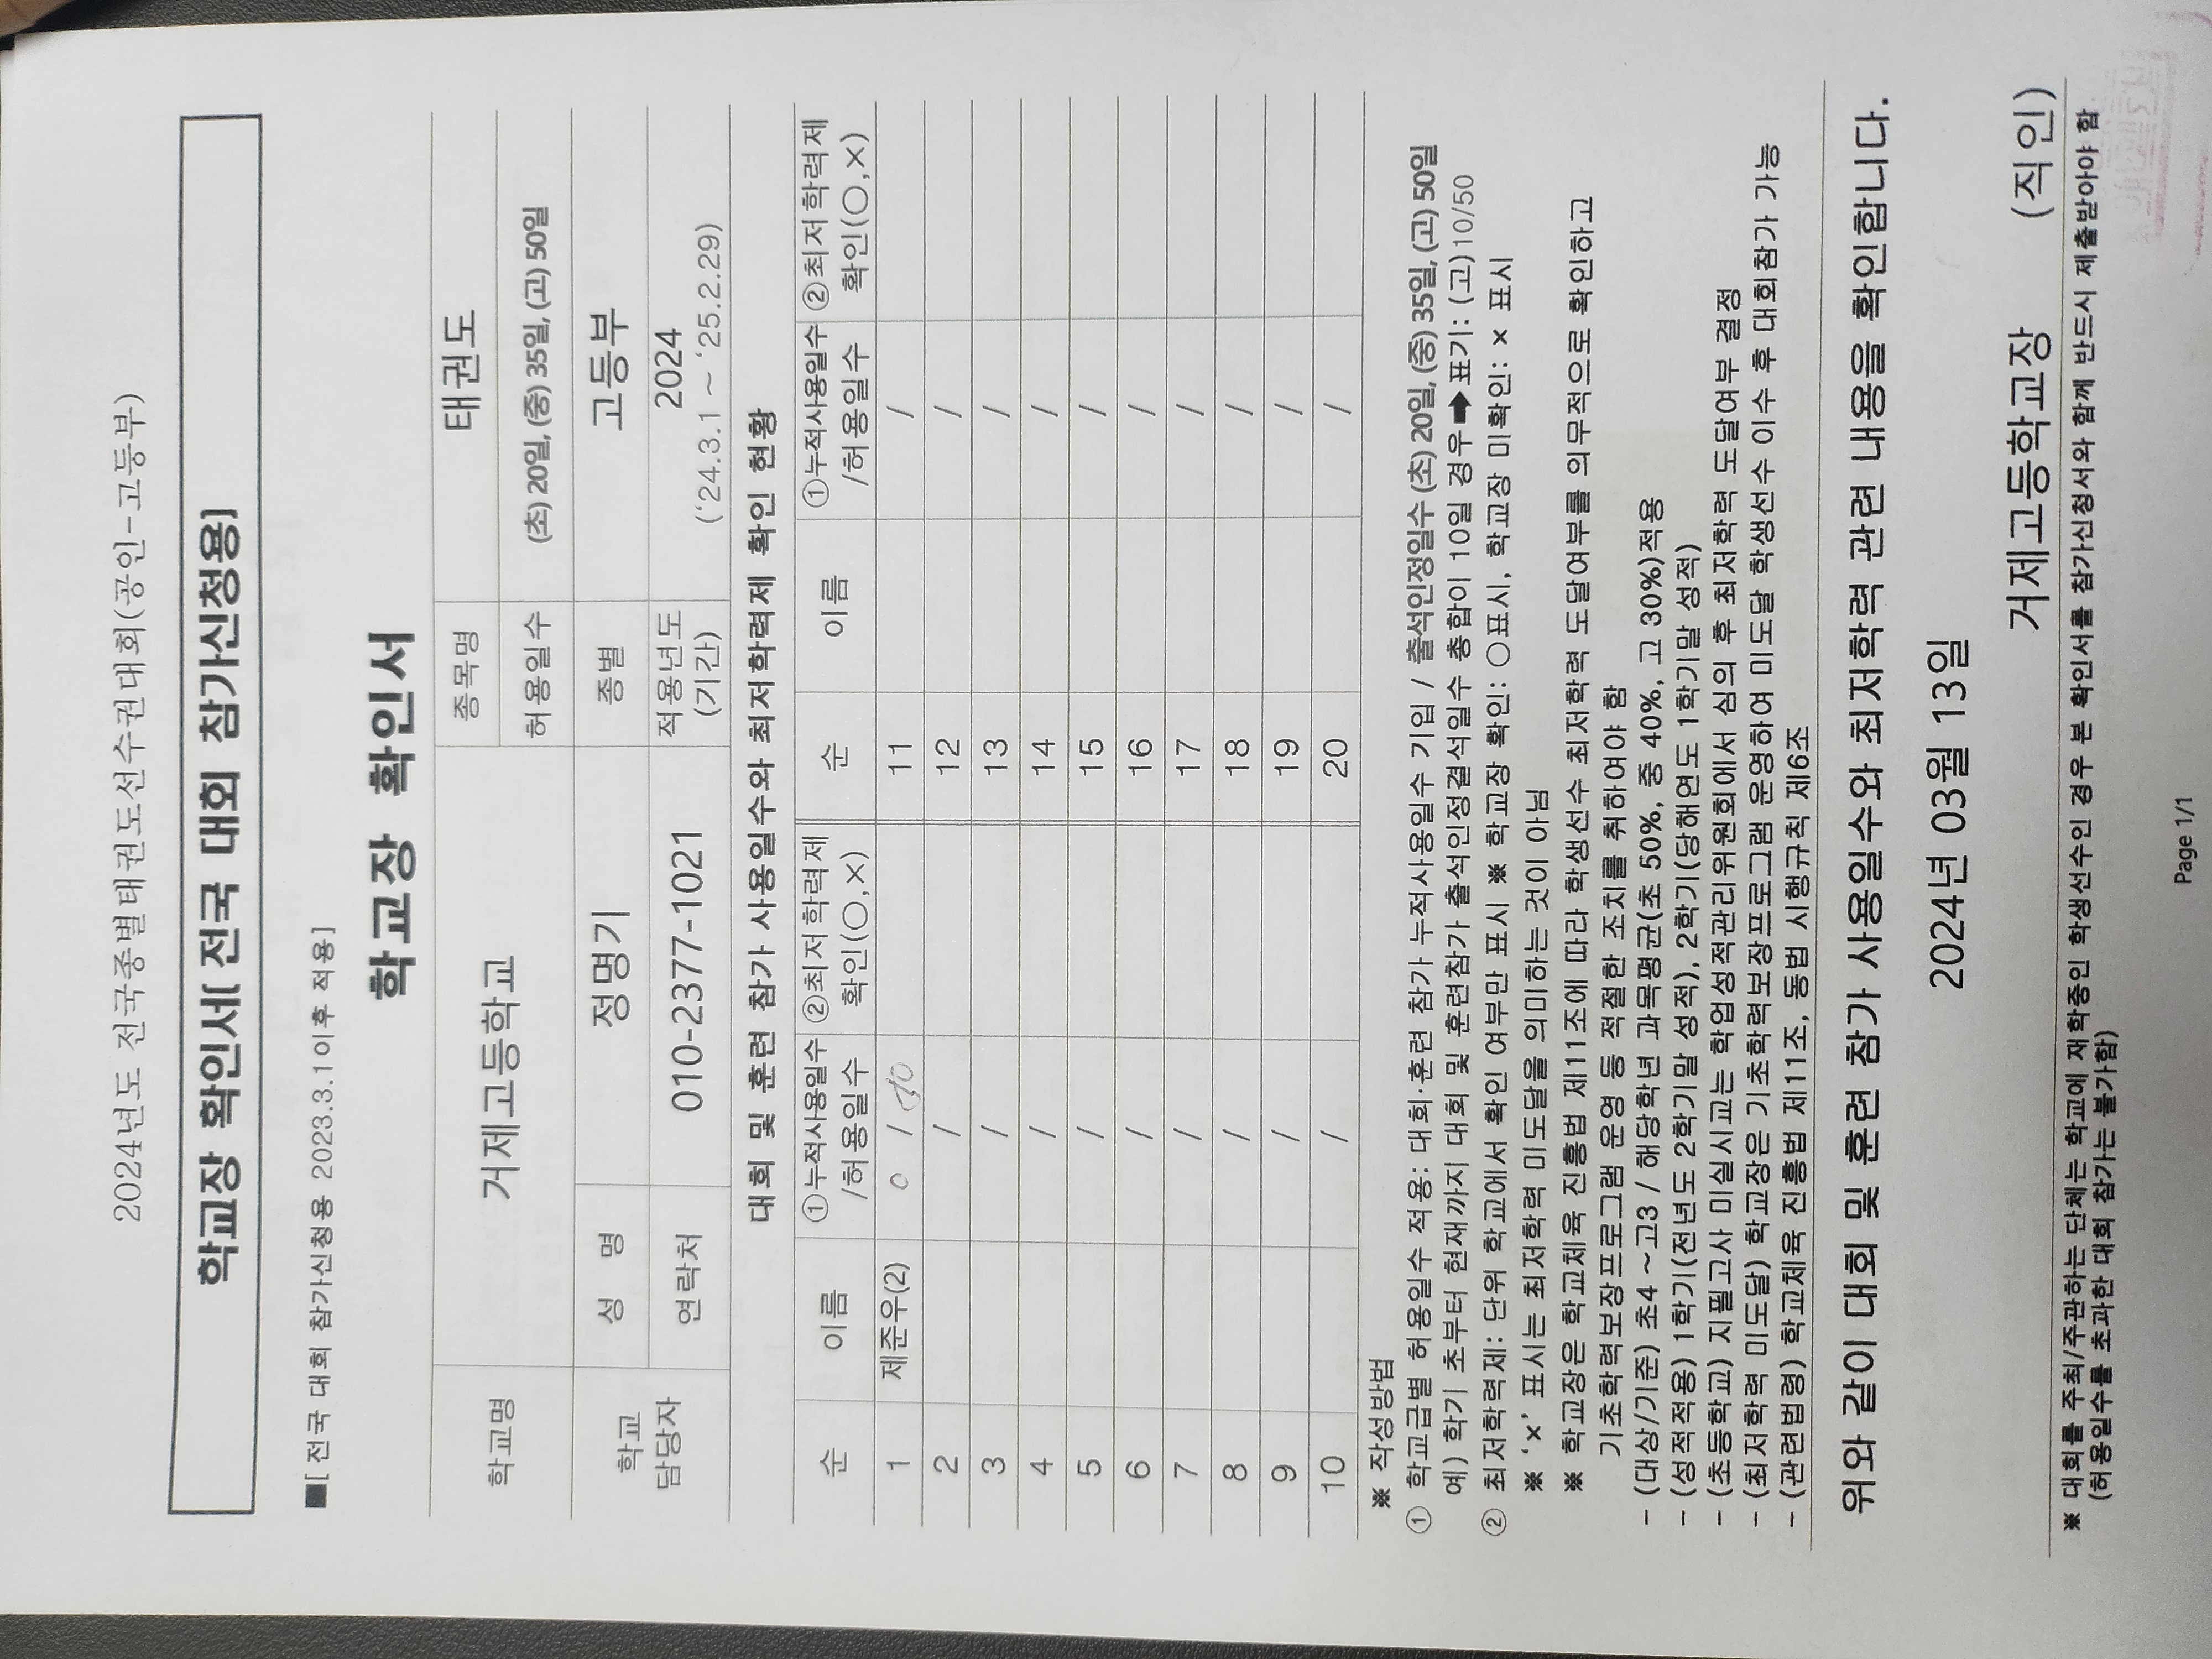 2024년도 전국종별태권도선수권대회(공인-고등부)
학교장 확인서[전국 대회 참가신청용]
■[전국 대회 참가신청용 2023.3.1이후 적용]
학교장 확인서
학교명 거제고등학교 종목명 태권도
허용일수 (초) 20일, (중) 35일, (고) 50일
학교 담당자 성 명 정명기 종별 고등부
연락처 010-2377-1021 적용년도 (기간) 2024 ('24.3.1 ~ '25.2.29)
대회 및 훈련 참가 사용일수와 최저학력제 확인 현황
순 이름 ①누적사용일수 /허용일수 ②최저학력제 확인(○,×) 순 이름 ①누적사용일수 /허용일수 ②최저학력제 확인(○,×)
1 제준우(2) 0 / 11 /
2 / 12 /
3 / 13 /
4 / 14 /
5 / 15 /
6 / 16 /
7 / 17 /
8 / 18 /
9 / 19 /
10 / 20 /
※ 작성방법
① 학교급별 허용일수 적용: 대회·훈련 참가 누적사용일수 기입 / 출석인정일수 (초) 20일, (중) 35일, (고) 50일
예) 학기 초부터 현재까지 대회 및 훈련참가 출석인정결석일수 총합이 10일 경우➡표기: (고)10/50
② 최저학력제: 단위 학교에서 확인 여부만 표시 ※ 학교장 확인: ○표시, 학교장 미확인: × 표시
※ '×' 표시는 최저학력 미도달을 의미하는 것이 아님
※ 학교장은 학교체육 진흥법 제11조에 따라 학생선수 최저학력 도달여부를 의무적으로 확인하고
기초학력보장프로그램 운영 등 적절한 조치를 취하여야 함
- (대상/기준) 초4 ~고3 / 해당학년 과목평균(초 50%, 중 40%, 고 30%)적용
- (성적적용) 1학기(전년도 2학기말 성적), 2학기(당해연도 1학기말 성적)
- (초등학교) 지필고사 미실시교는 학업성적관리위원회에서 심의 후 최저학력 도달여부 결정
- (최저학력 미도달) 학교장은 기초학력보장프로그램 운영하여 미도달 학생선수 이수 후 대회참가 가능
- (관련법령) 학교체육 진흥법 제11조, 동법 시행규칙 제6조
위와 같이 대회 및 훈련 참가 사용일수와 최저학력 관련 내용을 확인합니다.
2024년 03월 13일
거제고등학교장 (직인)
※ 대회를 주최/주관하는 단체는 학교에 재학중인 학생선수인 경우 본 확인서를 참가신청서와 함께 반드시 제출받아야 함
(허용일수를 초과한 대회 참가는 불가함)
Page 1/1